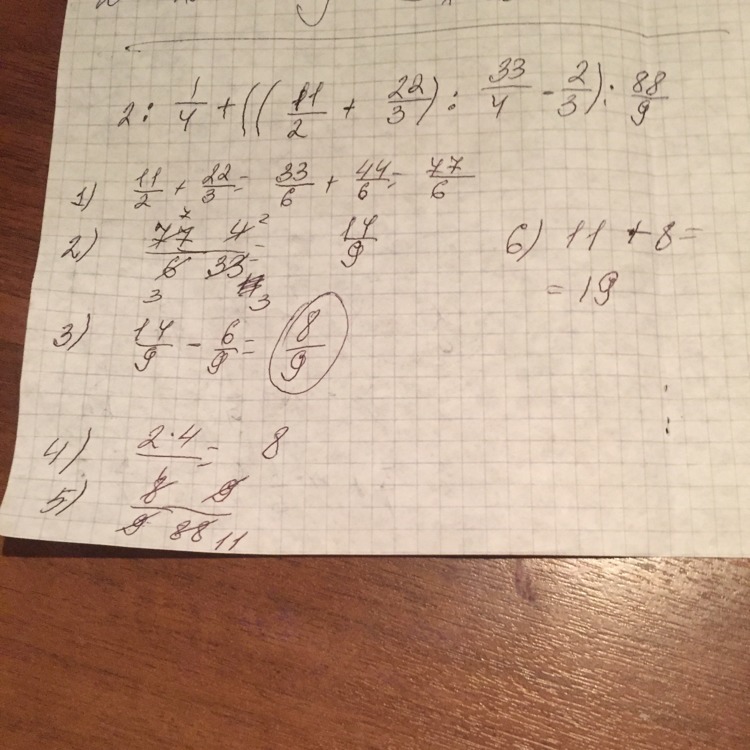 2 : 1/4 + ((11/2 + 22/3) : 33/4 - 2/3) : 88/9
1) 11/2 + 22/3 = 33/6 + 44/6 = 77/6
2) 77 4 / 6 33 = 14/9
7 2
3 3
3) 14/9 - 6/9 = 8/9
4) 2·4 = 8
5) 8 9 / 9 88 11
6) 11 + 8 =
= 19